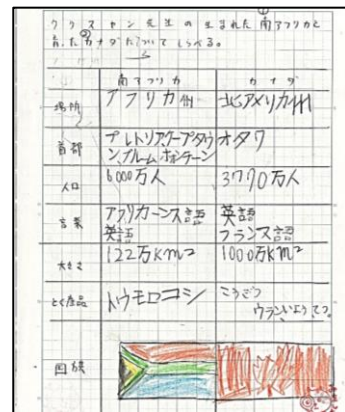 クリスチャン先生の生まれた南アフリカと
育ったカナダについてしらべる。
南アフリカ カナダ
場所 アフリカ州 北アメリカ州
首都 プレトリア、ケープタウン、ブルームホンテーン オタワ
人口 6000万人 3770万人
言葉 アフリカーンス語 英語 英語 フランス語
大きさ 122万km² 1000万km²
とく産品 トウモロコシ こうさつ ウラン
国旗